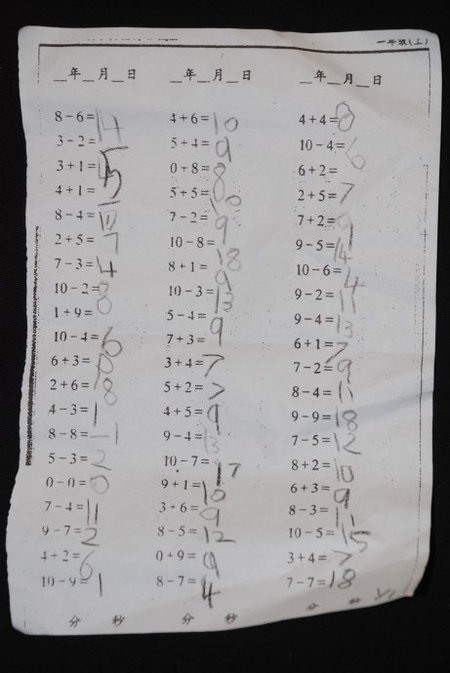 一年级(上)
__年__月__日 __年__月__日 __年__月__日
8-6=14 4+6=10 4+4=8
3-2= 5+4=9 10-4=6
3+1= 0+8=8 6+2=
4+1=5 5+5=10 2+5=7
8-4= 7-2=9 7+2=9
2+5=7 10-8=18 9-5=14
7-3=4 8+1=9 10-6=4
10-2=8 10-3=13 9-2=11
1+9= 5-4=9 9-4=13
10-4=6 7+3= 6+1=7
6+3= 3+4=7 7-2=9
2+6=8 5+2=7 8-4=11
4-3=1 4+5=9 9-9=18
8-8= 9-4=13 7-5=12
5-3=2 10-7=17 8+2=10
0-0=0 9+1=10 6+3=9
7-4=11 3+6=9 8-3=11
9-7=2 8-5=12 10-5=15
4+2=6 0+9=9 3+4=7
10-9=1 8-7=4 7-7=18
分 秒 分 秒 分 秒